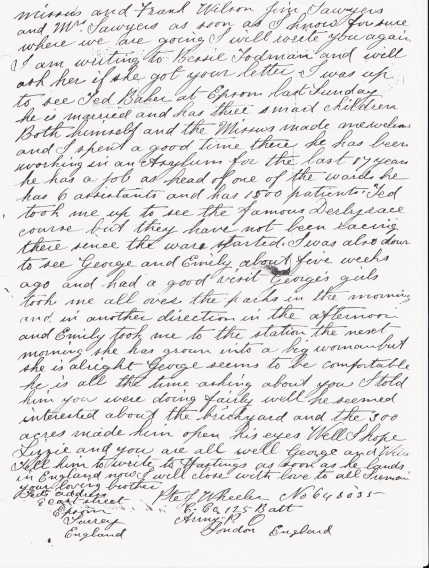 missus and Frank Wilson Jim Sawyers
and Mrs Sawyers as soon as I know for sure
where we are going I will write you again
I am writing to Bessie Todman and will
ask her if she got your letter, I was up
to see Ted Baker at Epsom last Sunday
he is married and has three small children
Both himself and the Missus made me welcome
and I spent a good time there he has been
working in an Asylum for the last 17 years
he has a job as head of one of the wards he
has 6 assistants and has 1500 patients. Ted
took me up to see the famous Derby race
course but they have not been racing
there sence the war started. I was also down
to see George and Emily about five weeks
ago and had a good visit George's girls
took me all over the parks in the morning
and in another direction in the afternoon
and Emily took me to the station the next
morning she has grown into a big woman but
she is alright George seems to be comfortable
he is all the time asking about you I told
him you were doing fairly well he seemed
interested about the brickyard and the 300
acres made him open his eyes Well I hope
Lizzie and you are all well George and
Tell him to write to Hastings as soon as he lands
in England now I will close with love to all I remain
your loving brother
address Pte J Wheeler No 648035
East street C Co 125 Batt
Epsom Army P. O
Surrey London England
England